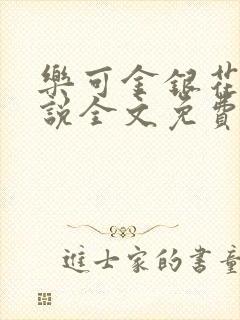 樂可金銀花
說全文免費
進士家的書童